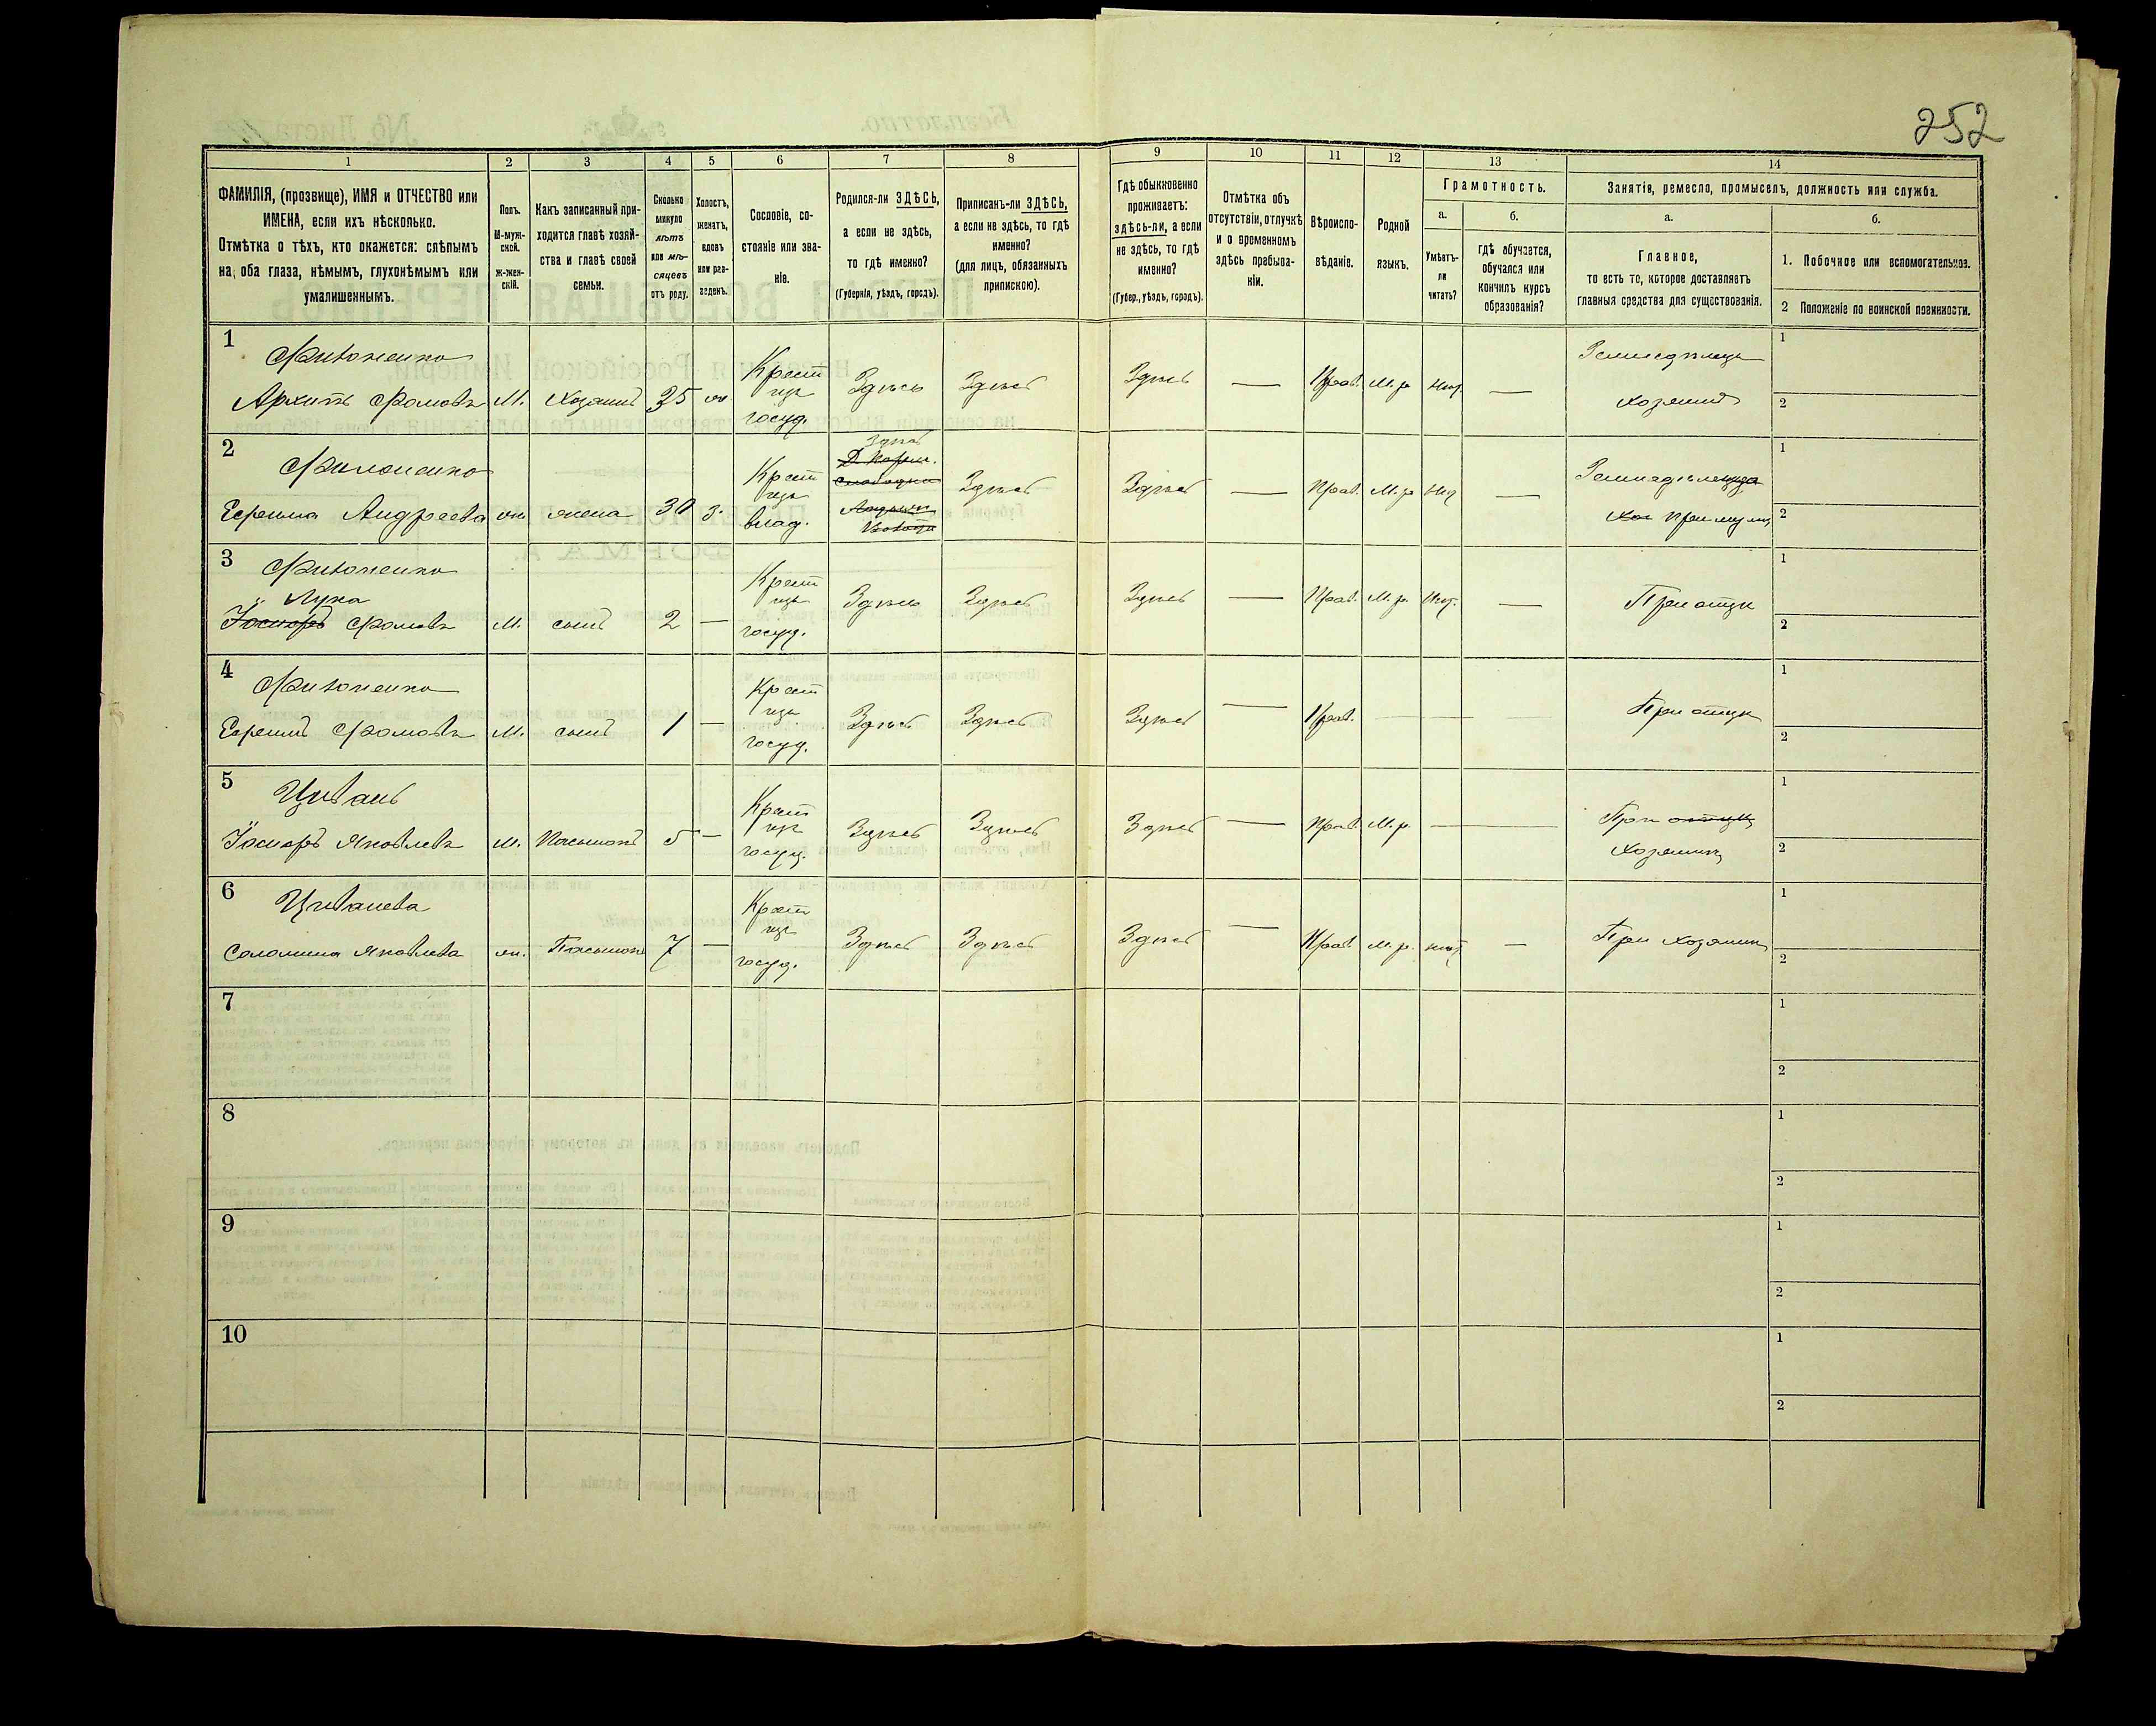 252
1 2 3 4 5 6 7 8 9 10 11 12 13 14
ФАМИЛІЯ, (прозвище), ИМЯ и ОТЧЕСТВО или
ИМЕНА, если ихъ нѣсколько.
Отмѣтка о тѣхъ, кто окажется: слѣпымъ
на оба глаза, нѣмымъ, глухонѣмымъ или
умалишеннымъ.
Полъ.
М-муж-
ской.
ж-жен-
скій.
Какъ записанный при-
ходится главѣ хозяй-
ства и главѣ своей
семьи.
Сколько
минуло
лѣтъ
или мѣ-
сяцевъ
отъ роду.
Холостъ,
женатъ,
вдовъ
или раз-
веденъ.
Сословіе, со-
стояніе или зва-
ніе.
Родился-ли ЗДѢСЬ,
а если не здѣсь,
то гдѣ именно?
(Губернія, уѣздъ, городъ).
Приписанъ-ли ЗДѢСЬ,
а если не здѣсь, то гдѣ
именно?
(для лицъ, обязанныхъ
припискою).
Гдѣ обыкновенно
проживаетъ:
здѣсь-ли, а если
не здѣсь, то гдѣ
именно?
(Губер., уѣздъ, городъ).
Отмѣтка объ
отсутствіи, отлучкѣ
и о временномъ
здѣсь пребыва-
ніи.
Вѣроиспо-
вѣданіе.
Родной
языкъ.
Грамотность.
а.
Умѣетъ-
ли
читать?
б.
гдѣ обучается,
обучался или
кончилъ курсъ
образованія?
Занятія, ремесло, промыселъ, должность или служба.
а.
Главное,
то есть то, которое доставляетъ
главныя средства для существованія.
б.
1. Побочное или вспомогательное.
2 Положеніе по воинской повинности.
1
Филоненко
Архипъ Фомовъ М. Хозяинъ 35 ж.
Крест
госуд.
Здѣсь Здѣсь Здѣсь — Прав. М. р. Нет —
Земледѣлецъ
хозяинъ
1
2
2
Филоненко
Андреева жена 30 з.
Крест
влад.
Здѣсь
Здѣсь Здѣсь — Прав. М. р. Нет —
При мужѣ
1
2
3
Филоненко
Лука
Фомовъ М. сынъ 2 —
Крест
госуд.
Здѣсь Здѣсь Здѣсь — Прав. М. р. Нет. —
При отцѣ
1
2
4
Филоненко
Ефремъ Фомовъ М. сынъ 1 —
Крест
госуд.
Здѣсь Здѣсь Здѣсь — Прав.
При отцѣ
1
2
5
Яковлевъ М. 5 —
Крест
госуд.
Здѣсь Здѣсь Здѣсь — Прав. М. р. —
При отцѣ
Хозяинѣ
1
2
6
Яковлева 7 —
Крест
госуд.
Здѣсь Здѣсь Здѣсь — Прав. М. р. нет —
При Хозяинѣ
1
2
7
1
2
8
1
2
9
1
2
10
1
2